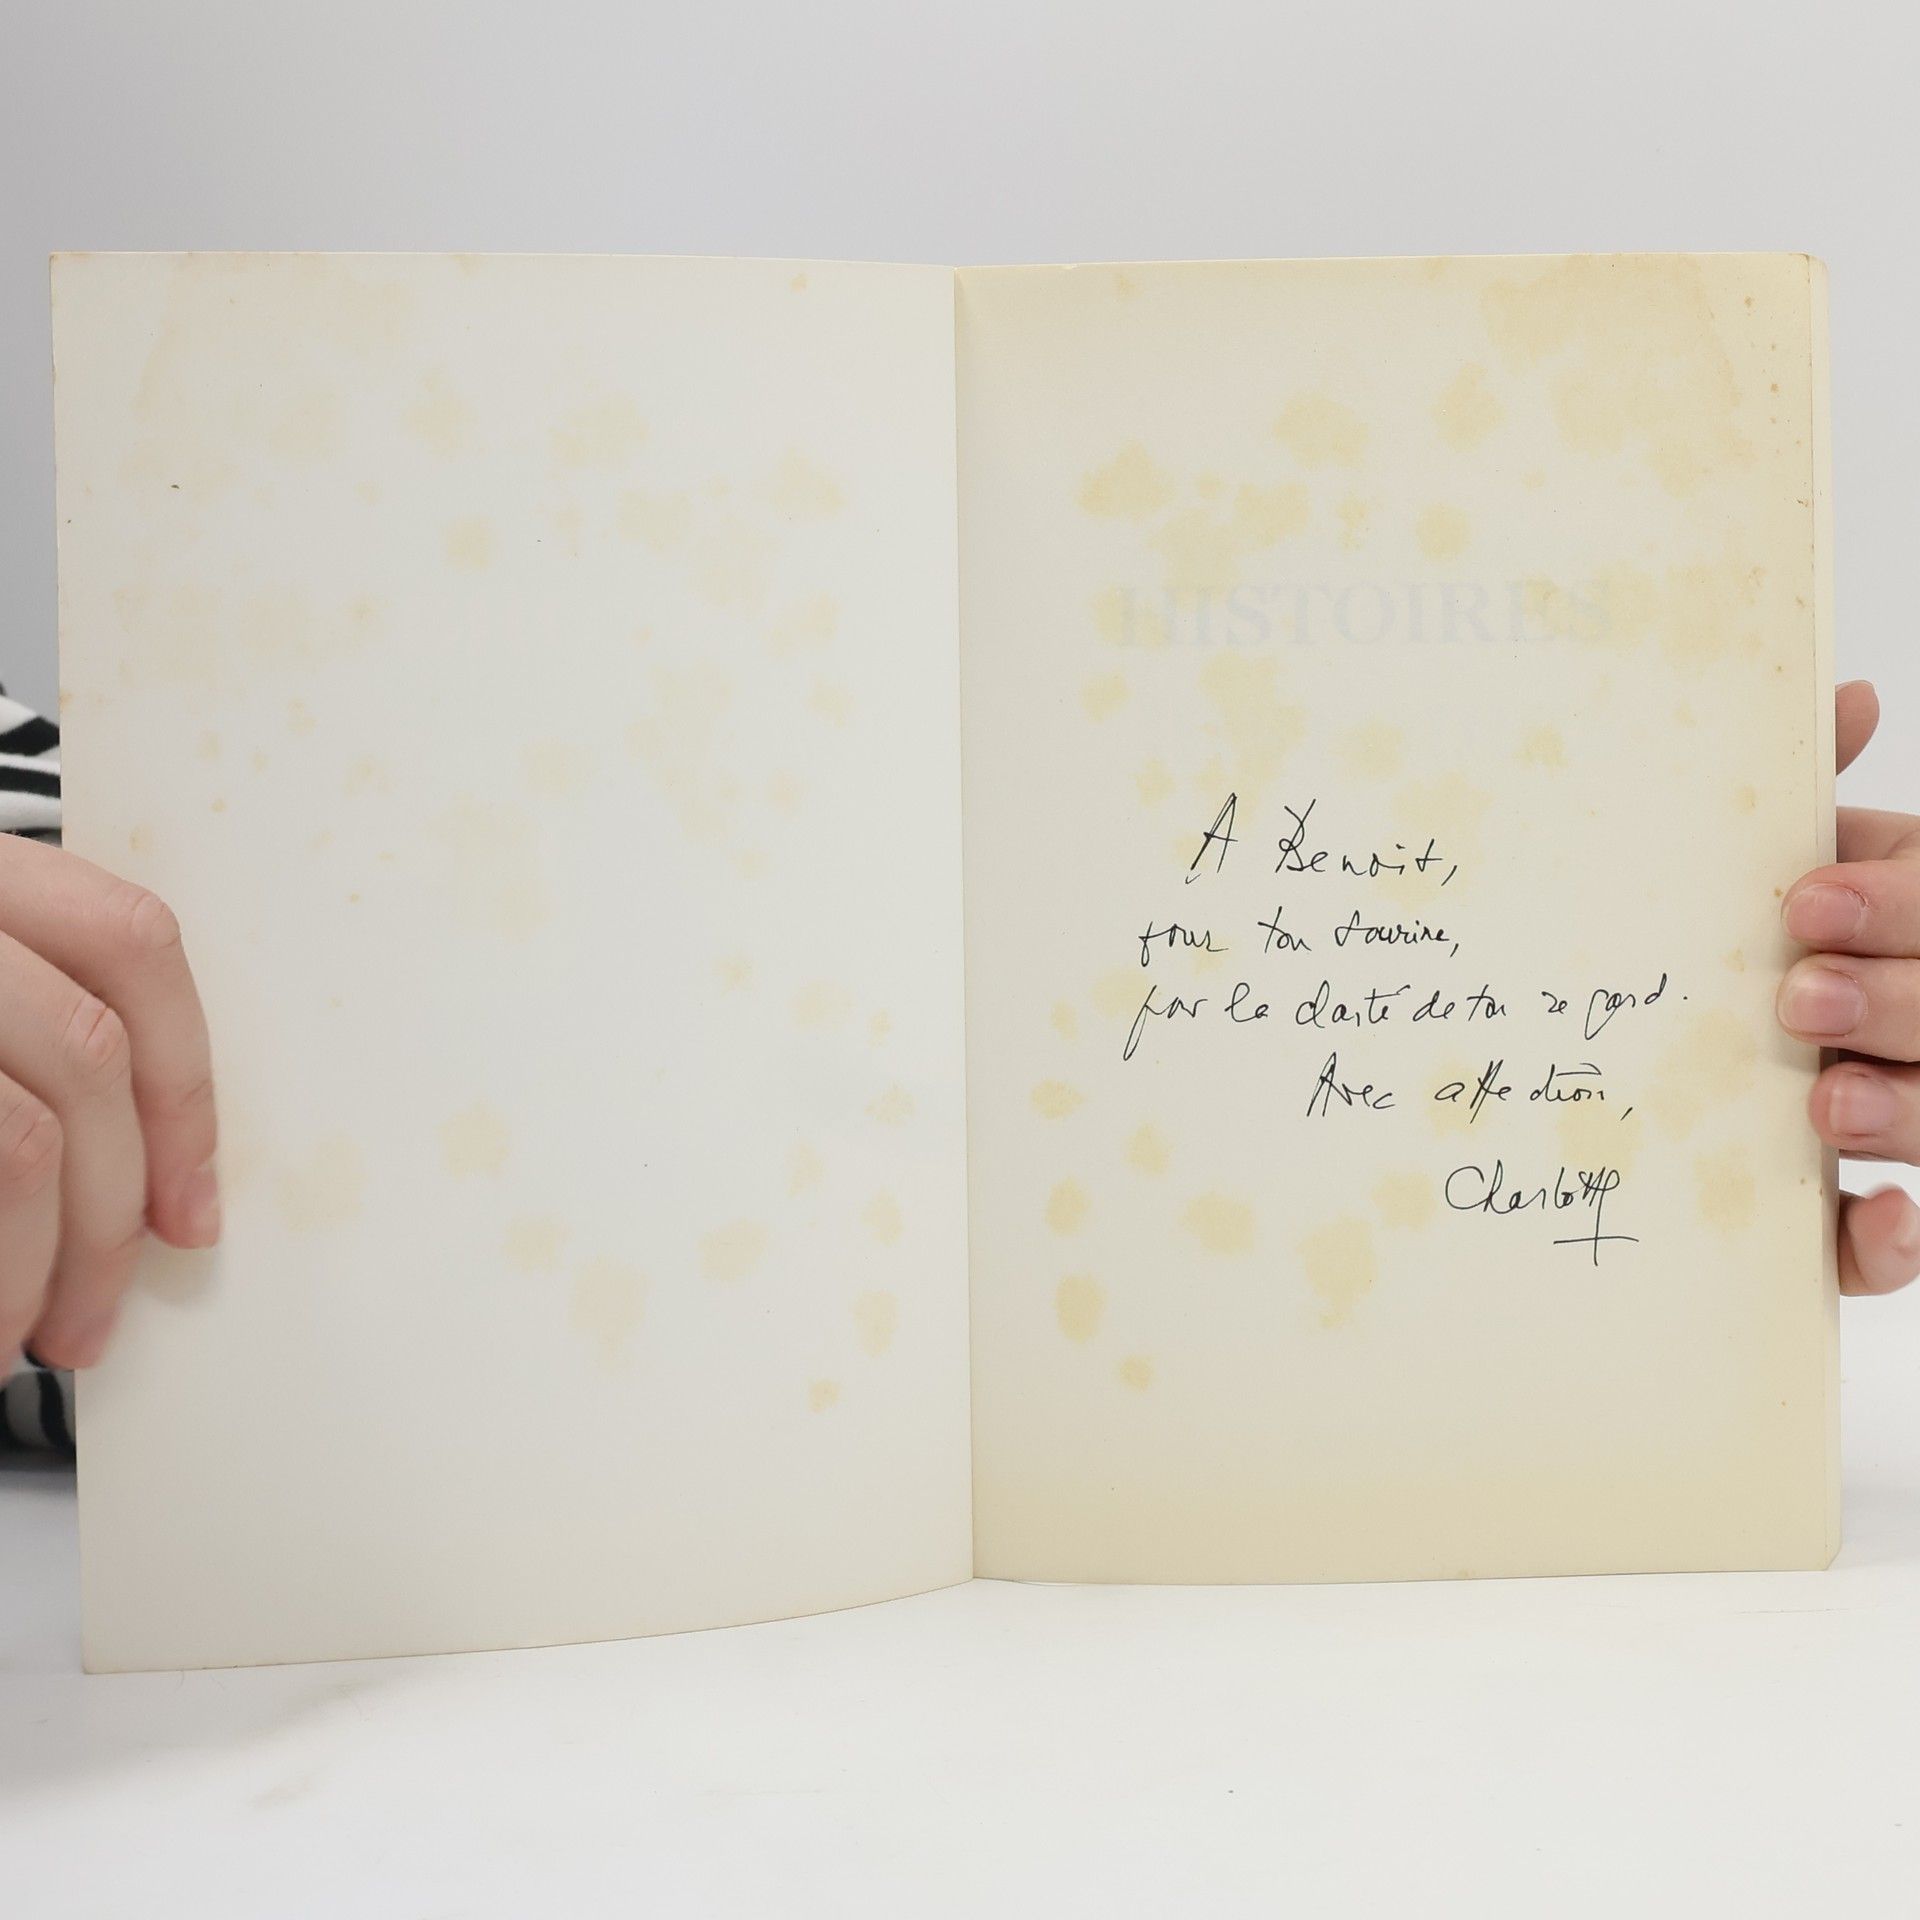 HISTOIRES
A Benoit,
pour ton sourire,
pour la clarté de ton regard.
Avec affection,
Charlotte